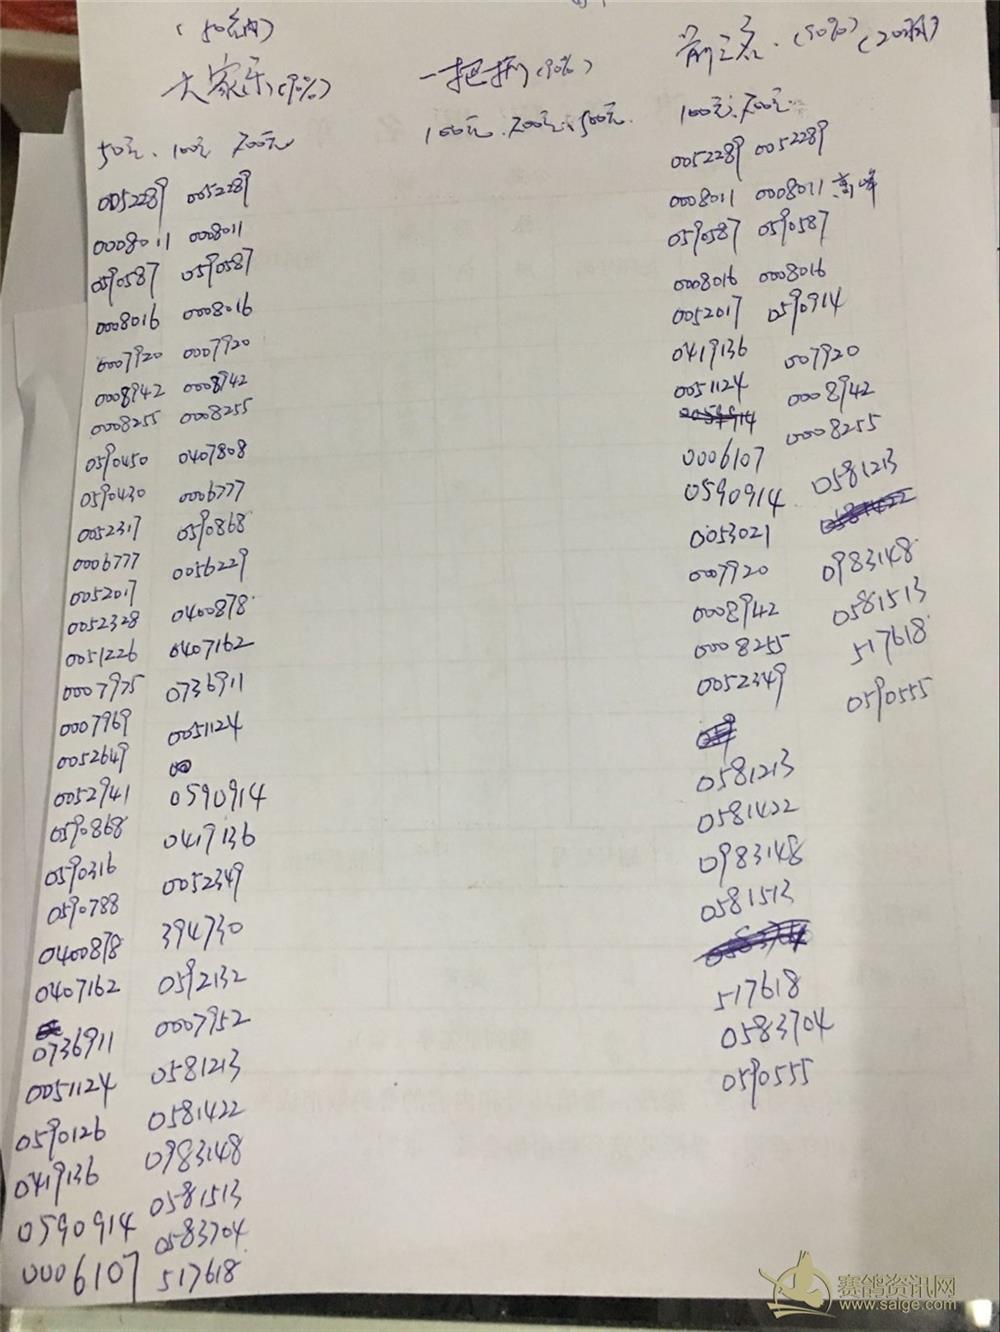 (50名内)
大家乐(90%)
50元、100元 200元
0052289 0052289
0008011 0008011
0590587 0590587
0008016 0008016
0007920 0007920
0008942 0008942
0008255 0008255
0590450 0407808
0590430 0006777
0052317 0590868
0006777 0056229
0052017
0052328 0400878
0051226 0407162
0007975 0736911
0007969 0051124
0052649
0052941 0590914
0590868 0419136
0590316 0052349
0590788 394730
0400878 0592132
0407162 0007952
0736911 0581213
0051124 0581422
0590126 0983148
0419136 0581513
0590914 0583704
0006107 517618
一把抓(90%)
100元、200元、500元
前三名、(90%) (20名内)
100元、200元
0052289 0052289
0008011 0008011 高峰
0590587 0590587
0008016 0008016
0052017 0590914
0419136 007920
0051124 0008942
0006107 0008255
0590914 0581213
0053021
0007920 0983148
0008942 0581513
0008255 517618
0052349 0590555
0581213
0581422
0983148
0581513
517618
0583704
0590555
赛鸽资讯网
www.saige.com